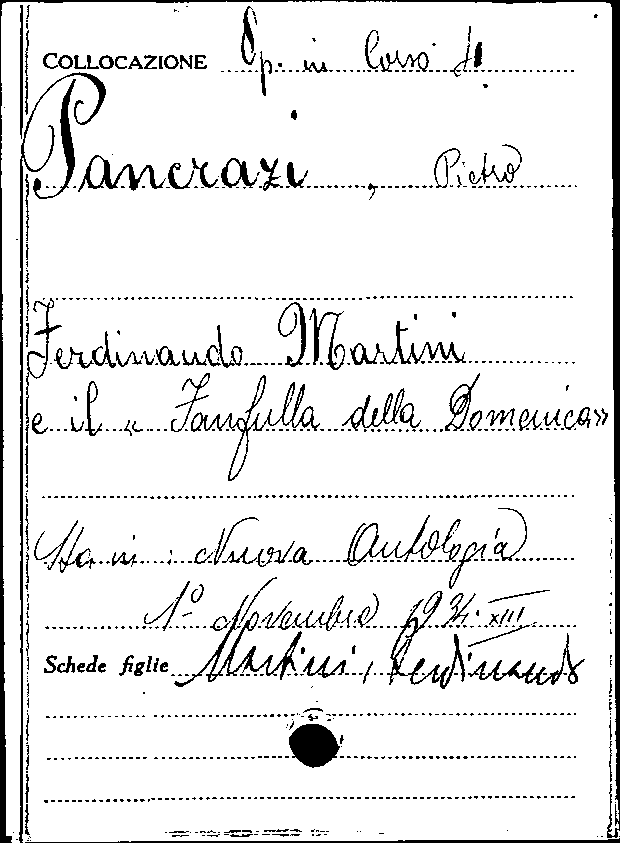 COLLOCAZIONE Op. in Corso
Pancrazi, Pietro
Ferdinando Martini
e il « Fanfulla della Domenica»
Sta in: Nuova Antologia
1º Novembre 1934. XIII
Schede figlie Martini, Ferdinando